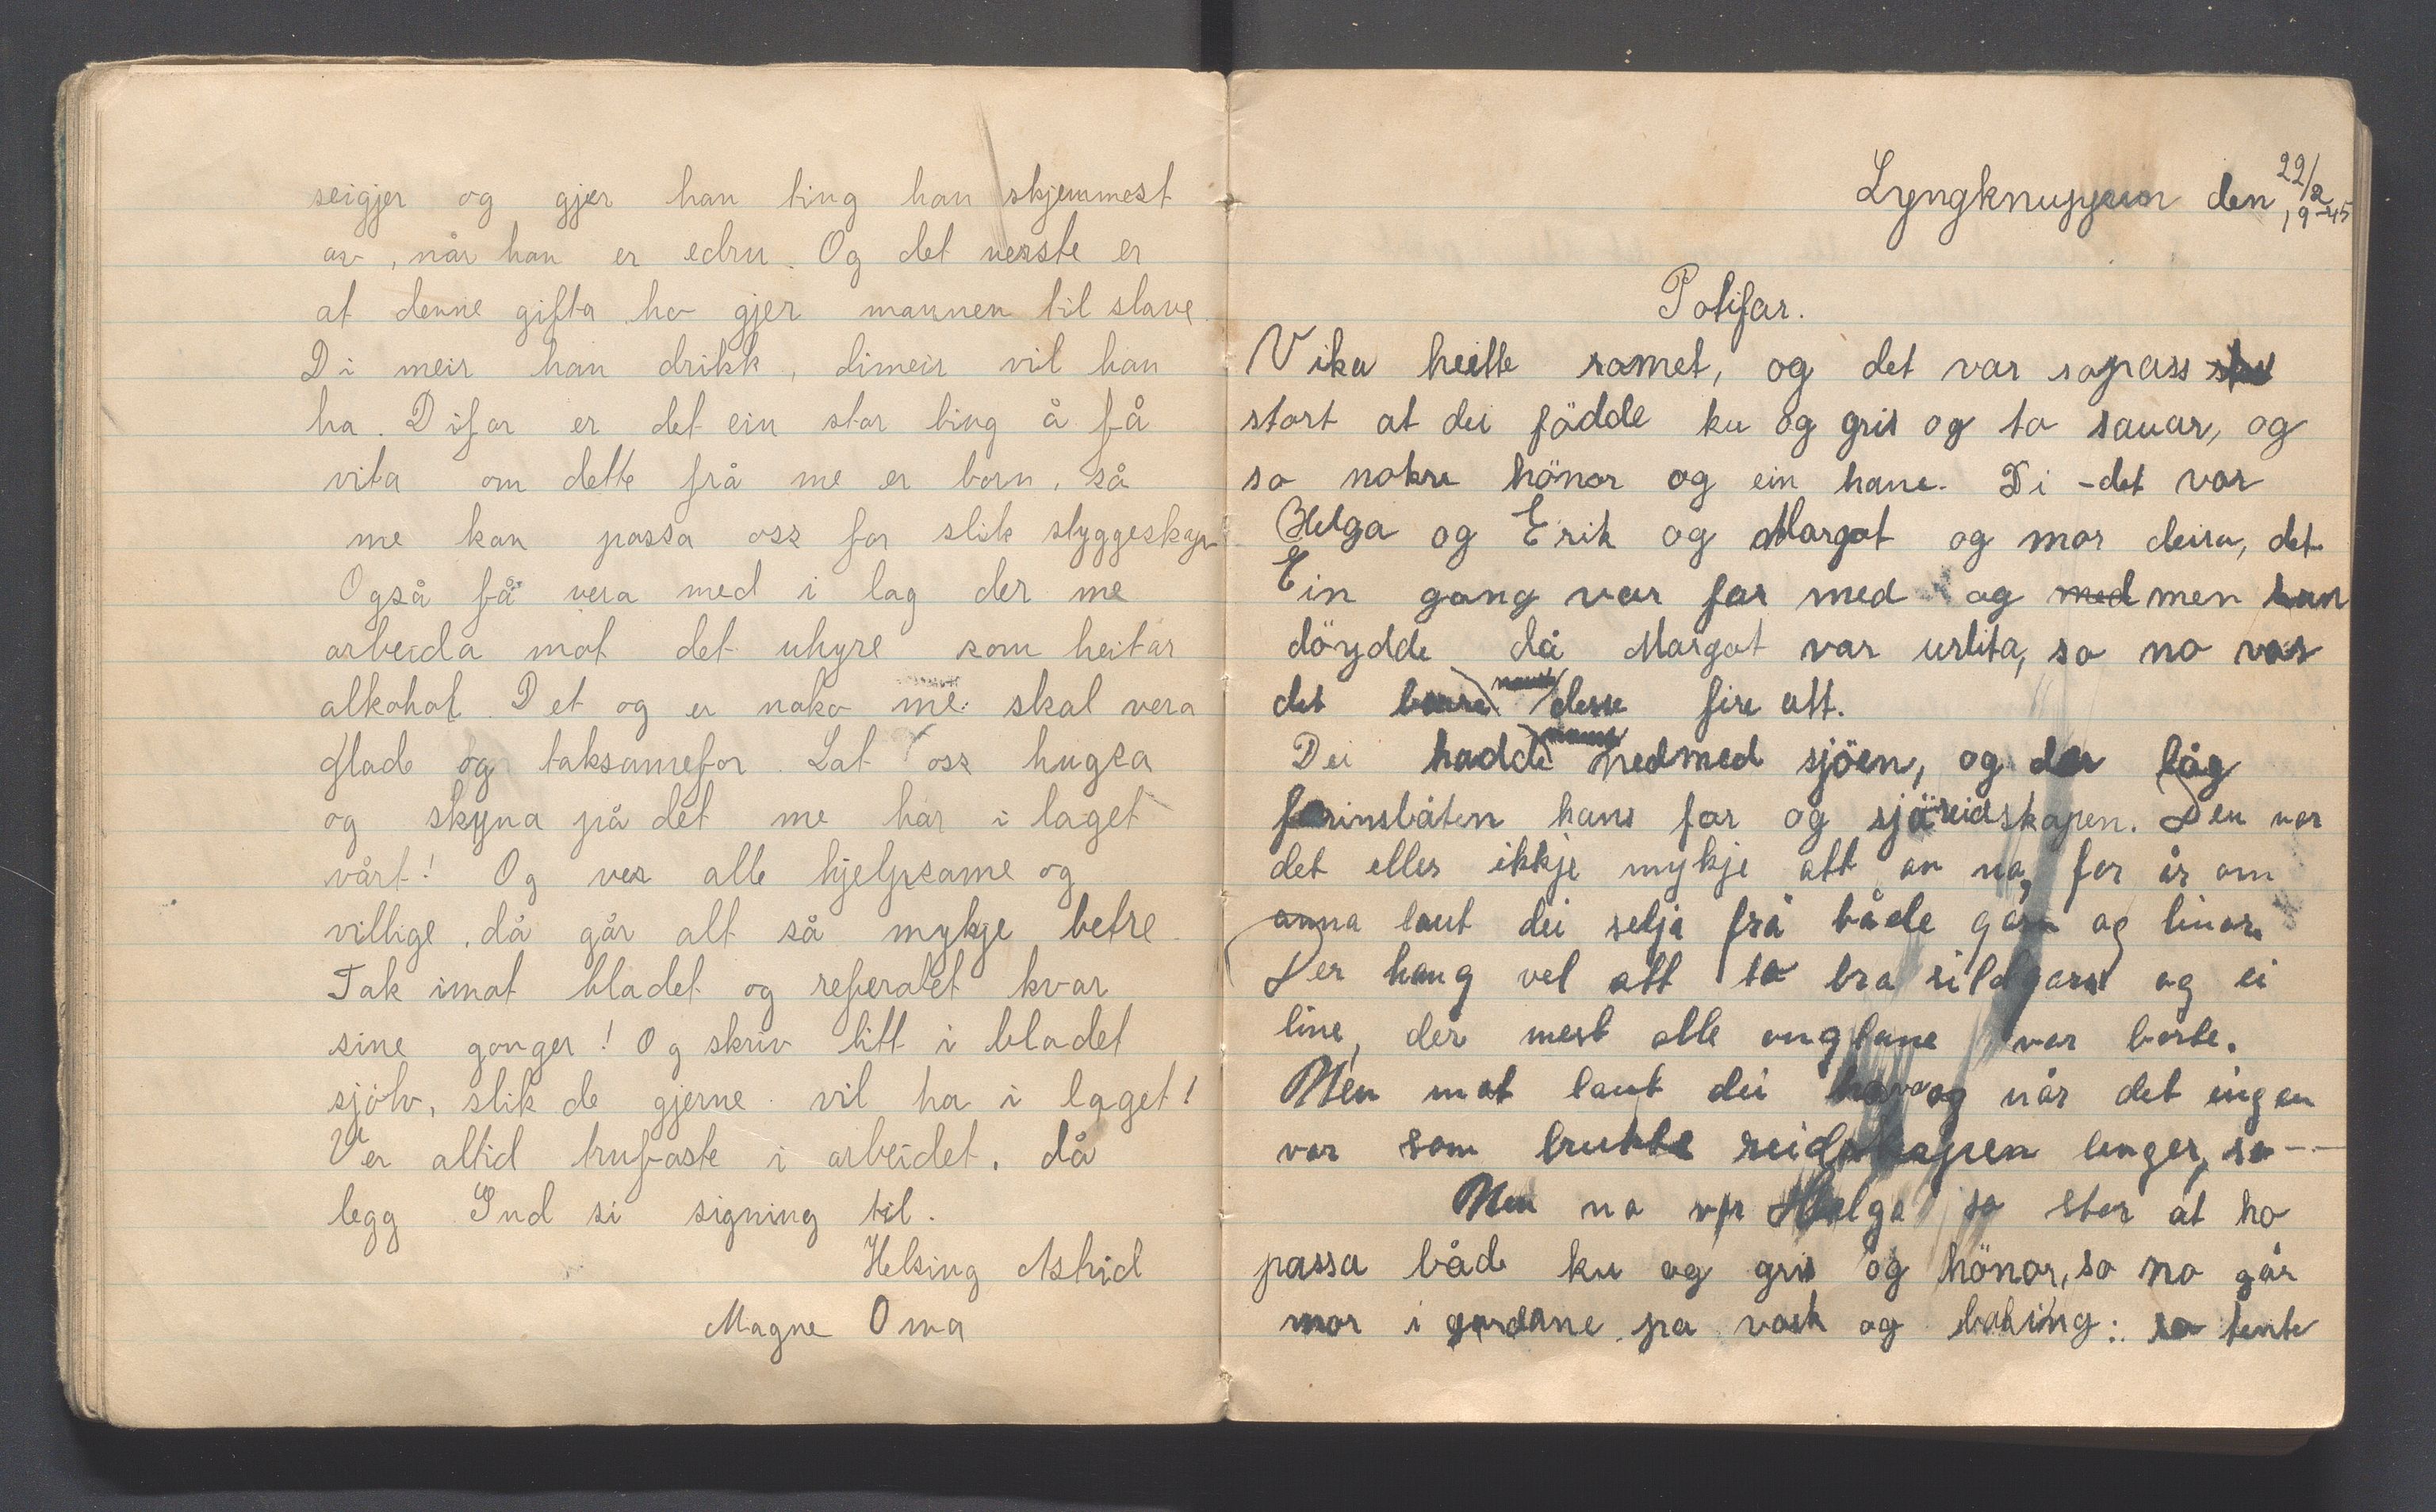 seigjer og gjer han ting han skjemmest
av, når han er edru. Og det verste er
at denne gifta ho gjer mannen til slave.
Di meir han drikk, dimeir vil han
ha. Difor er det ein stor ting å få
vita om dette frå me er born, så
me kan passa oss for slik styggeskap
Også få vera med i lag der me
arbeida mot det uhyre som heitar
alkohol. Det og er noko me skal vera
glade og taksamefor. Lat oss hugsa
og skyna på det me har i laget
vårt! Og ver alle hjelpsame og
villige, då går alt så mykje betre.
Tak imot bladet og referatet kvar
sine gonger! Og skriv litt i bladet
sjölv, slik de gjerne vil ha i laget!
Ver altid trufaste i arbeidet, då
legg Gud si signing til.
Helsing Astrid
Magne Oma
Lyngknuppen den 22/2
19-45
Potifar.
Vika heitte romet, og det var sopass
stort at dei födde ku og gris og to sauar, og
so nokre hönor og ein hane. Di - det var
Helga og Erik og Margot og mor deira, det.
Ein gong var far med og med men han
döydde då Margot var urlita, so no var
det bare naust desse fire att.
Dei hadde naust nedmed sjöen, og der låg
færinsbåten hans far og sjöreidskapen. Den var
det elles ikkje mykje att av no, for år om
anna laut dei selja frå både garn og linor.
Der hang vel att to bra sildgarn og ei
line, der mest alle onglane var borte.
Men mat laut dei hava og når det ingen
var som brukte reidskapen lenger, so --
Men no var Helga so stor at ho
passa både ku og gris og hönor, so no går
mor i gardane pa vask og baking: so tente